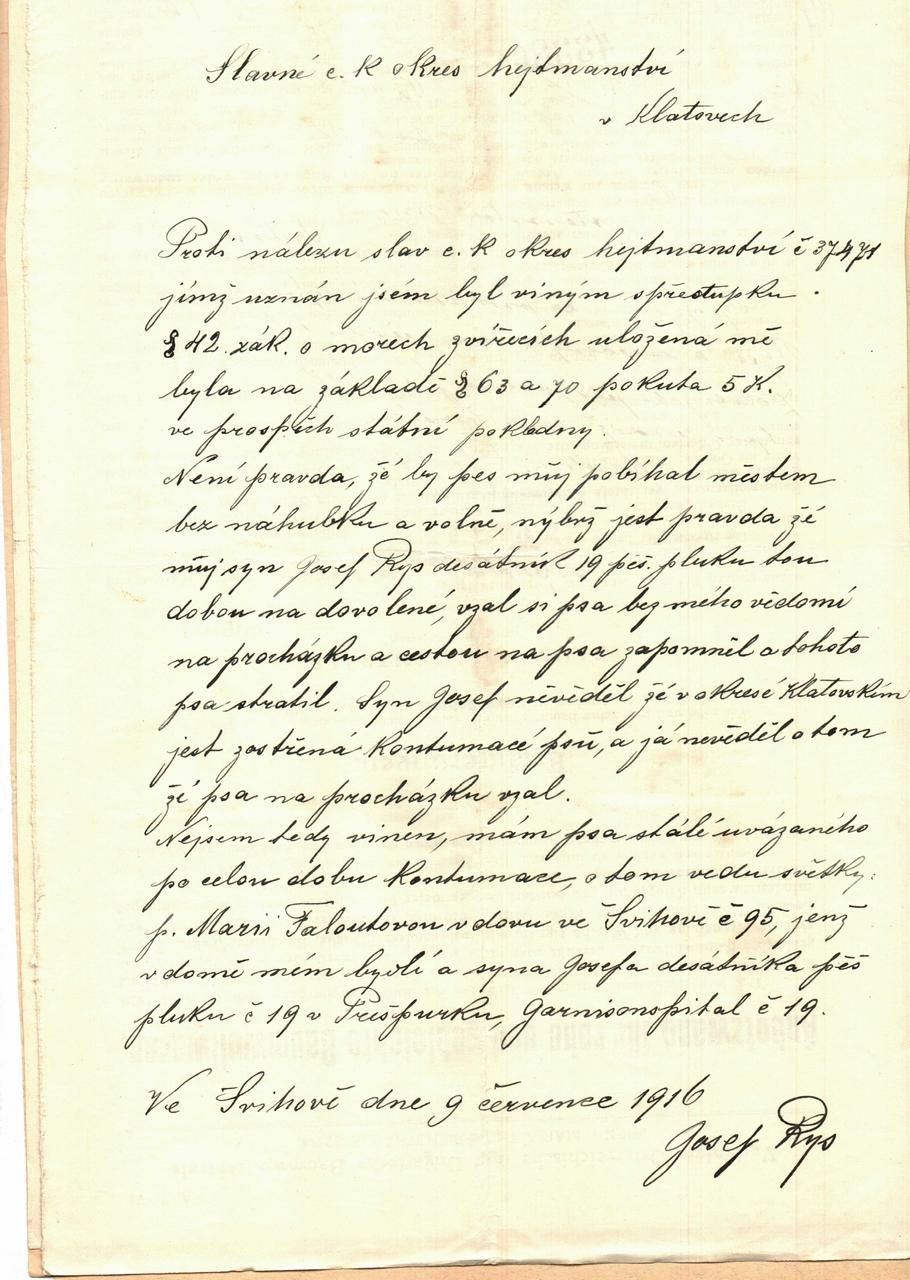 Slavné c. k okres hejtmanství
v Klatovech
Proti nálezu slav c. k okres hejtmanství č 37471
jímž uznán jsém byl viným spřestupku
§ 42. zák. o morech zvířecích uložená mě
byla na základě § 63 a 70 pokuta 5 K.
ve prospěch státní pokladny.
Není pravda, žé by pes můj pobíhal městem
bez náhubku a volně, nýbrž jest pravda žé
můj syn Josef Rys desátník 19 pěš. pluku tou
dobou na dovolené, vzal si psa bez mého vědomí
na procházku a cestou na psa zapomněl a tohoto
psa stratil. Syn Josef něvěděl žé v okresé Klatovském
jest zostřená kontumacé psů, a já nevěděl o tom
žé psa na procházku vzal.
Nejsem tedy vinen, mám psa stálé uvázaného
po celou dobu kontumace, o tom vedu světky:
p. Marii Faloutovou vdovu ve Švihově č 95, jenž
v domě mém bydlí a syna Josefa desátníka pěš
pluku č 19 v Prešpurku, Garnisonspital č 19.
Ve Švihově dne 9 července 1916
Josef Rys